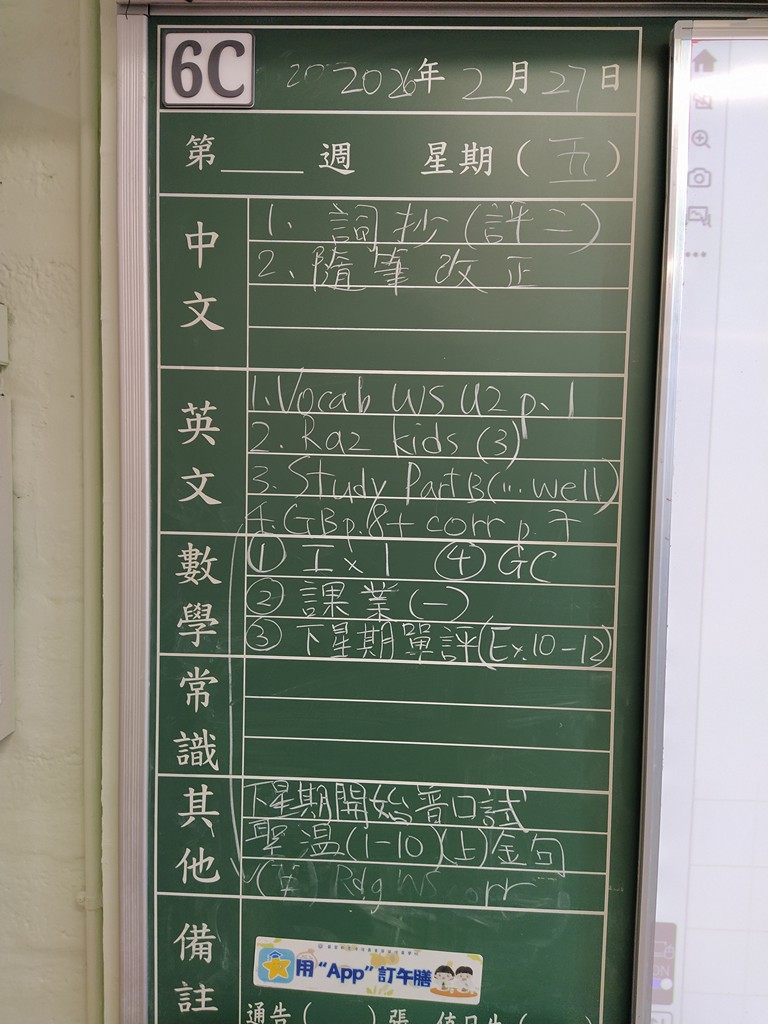 6C 2026年2月27日
第____週 星期(五)
中文
1、詞抄(評二)
2、隨筆改正
英文
1.Vocab WS U2 p.1
2. Raz kids (3)
3. Study Part B(... well)
4. GB p.8+ corr p.7
數學
① Ix1 ④ GC
② 課業(一)
③ 下星期單評(Ex.10-12)
常識
其他
下星期開始普口試
聖溫(1-10)(上)金句
Rdg WS
備註
用“App”訂午膳
通告( )張